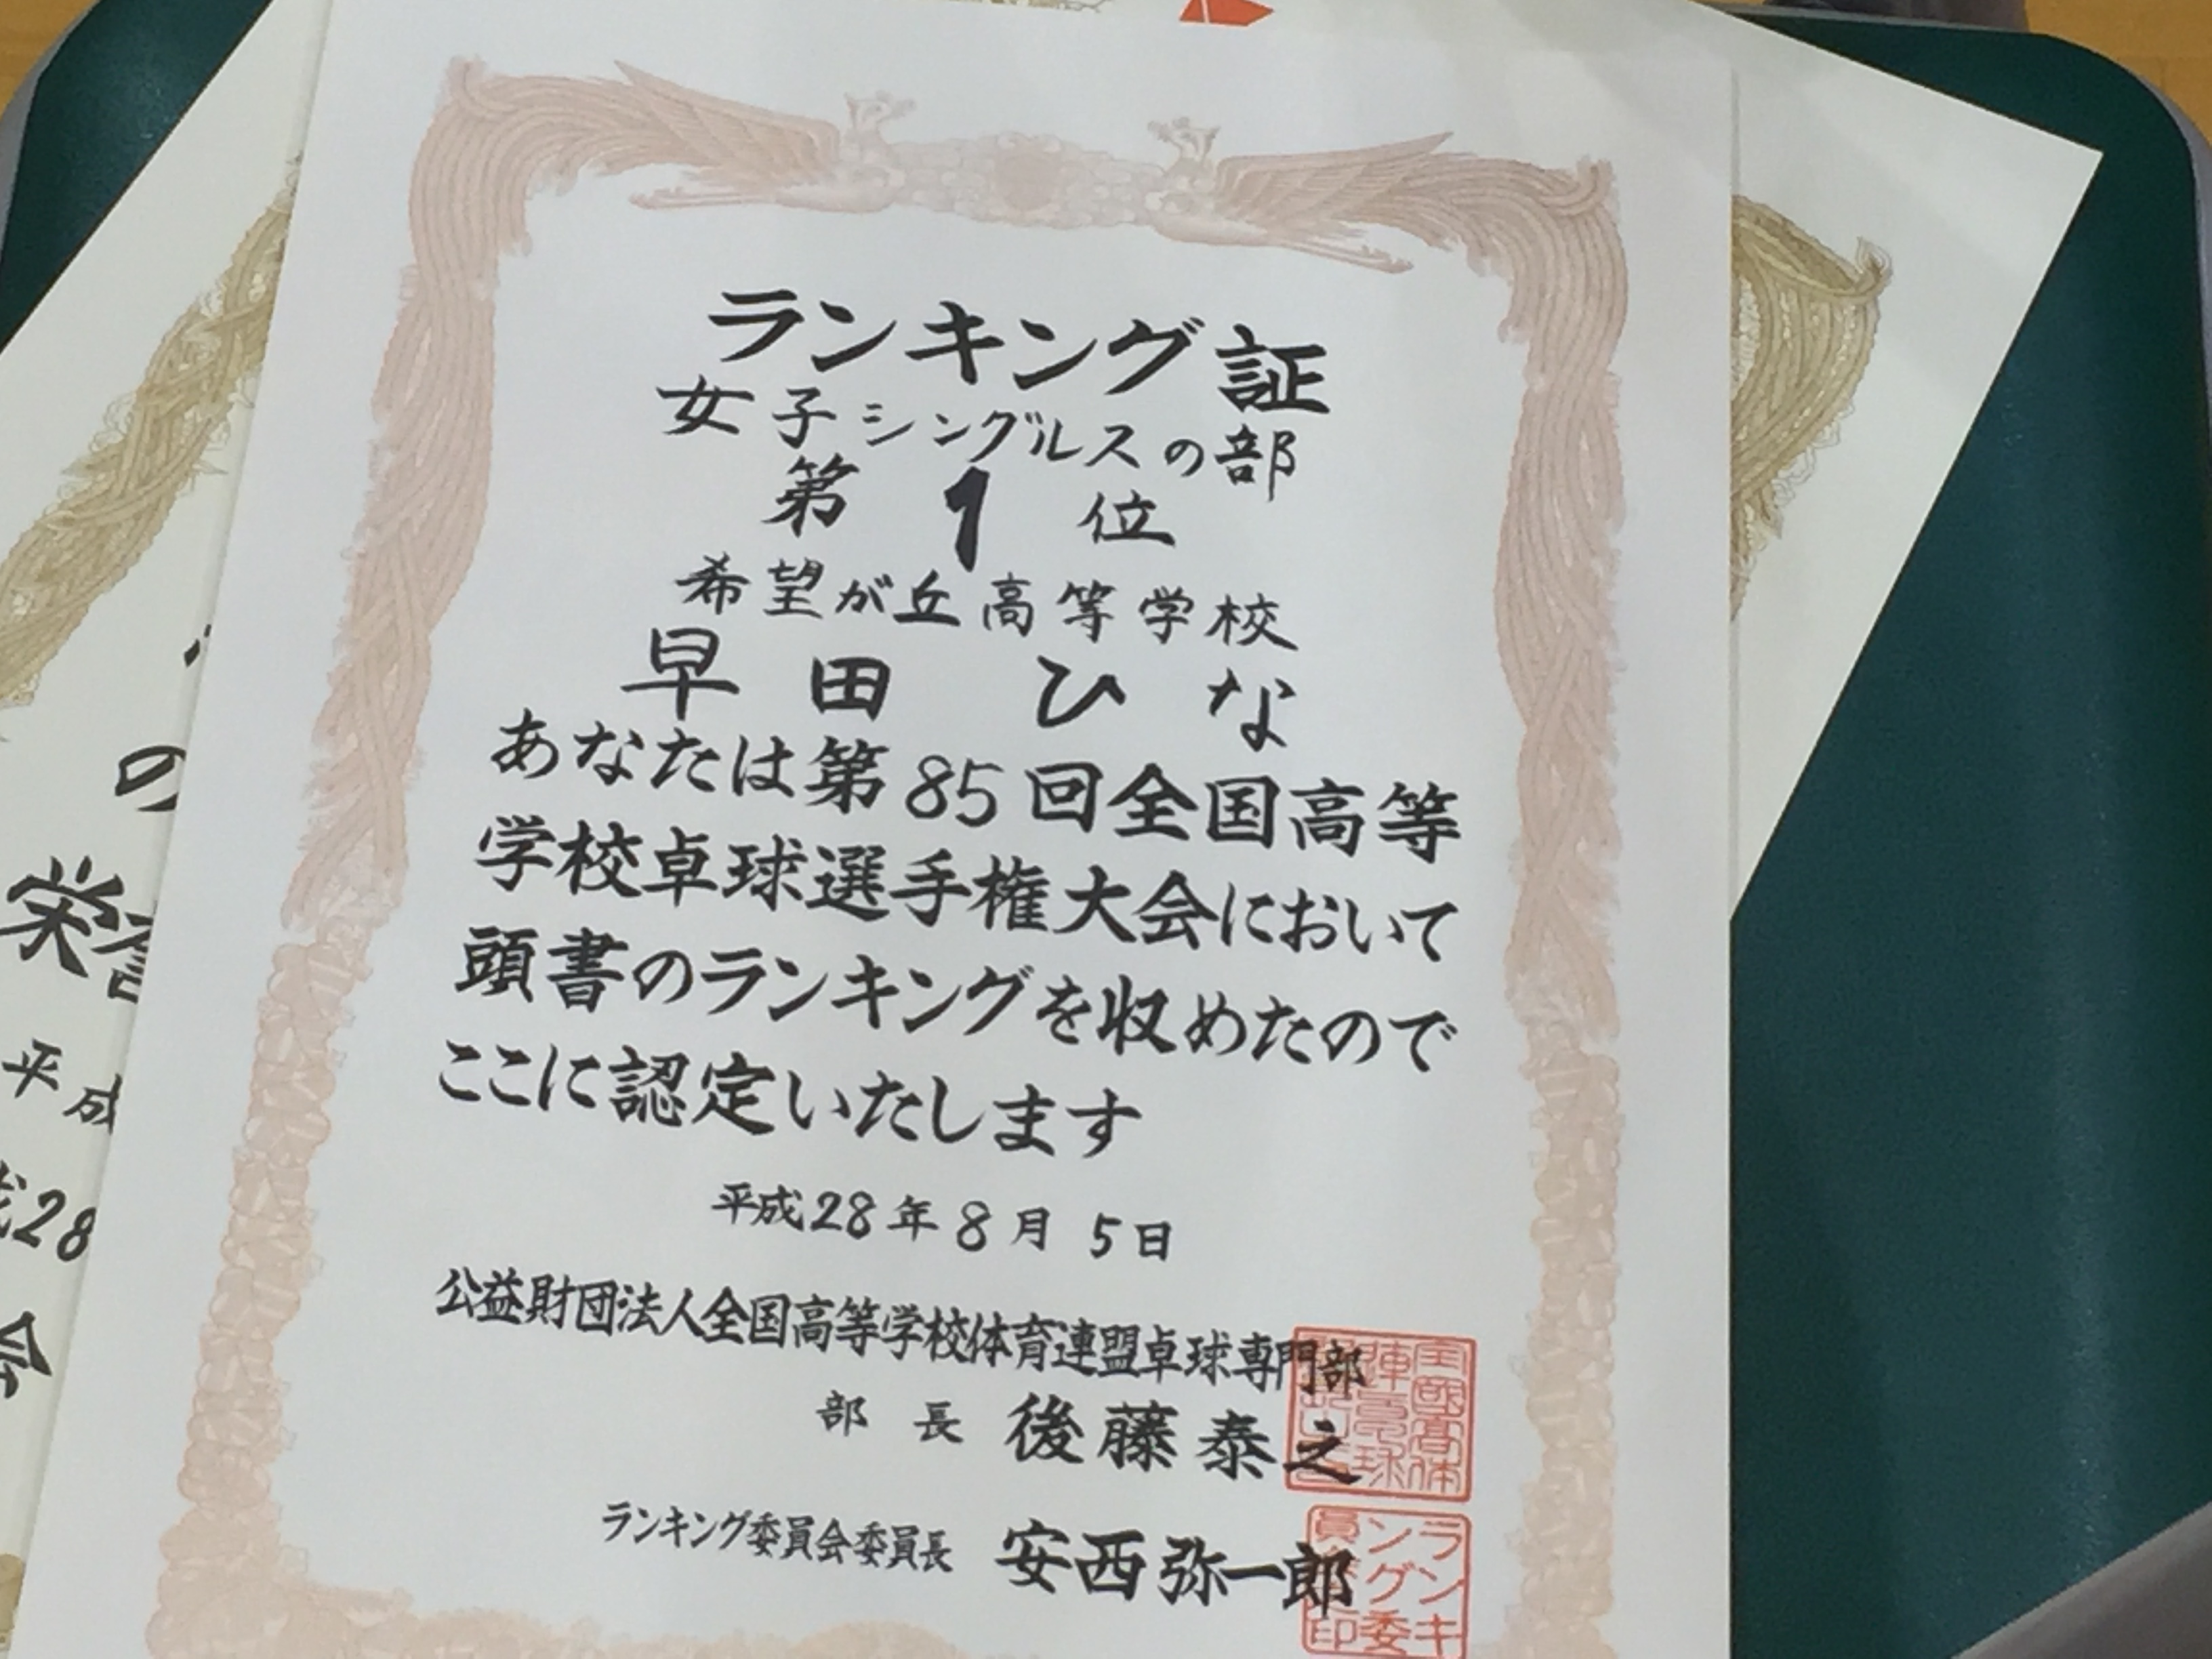 ランキング証
女子シングルスの部
第1位
希望が丘高等学校
早田ひな
あなたは第85回全国高等
学校卓球選手権大会において
頭書のランキングを収めたので
ここに認定いたします
平成28年8月5日
公益財団法人全国高等学校体育連盟卓球専門部
部長 後藤泰之
ランキング委員会委員長 安西弥一郎
の
栄誉
平成
28
会